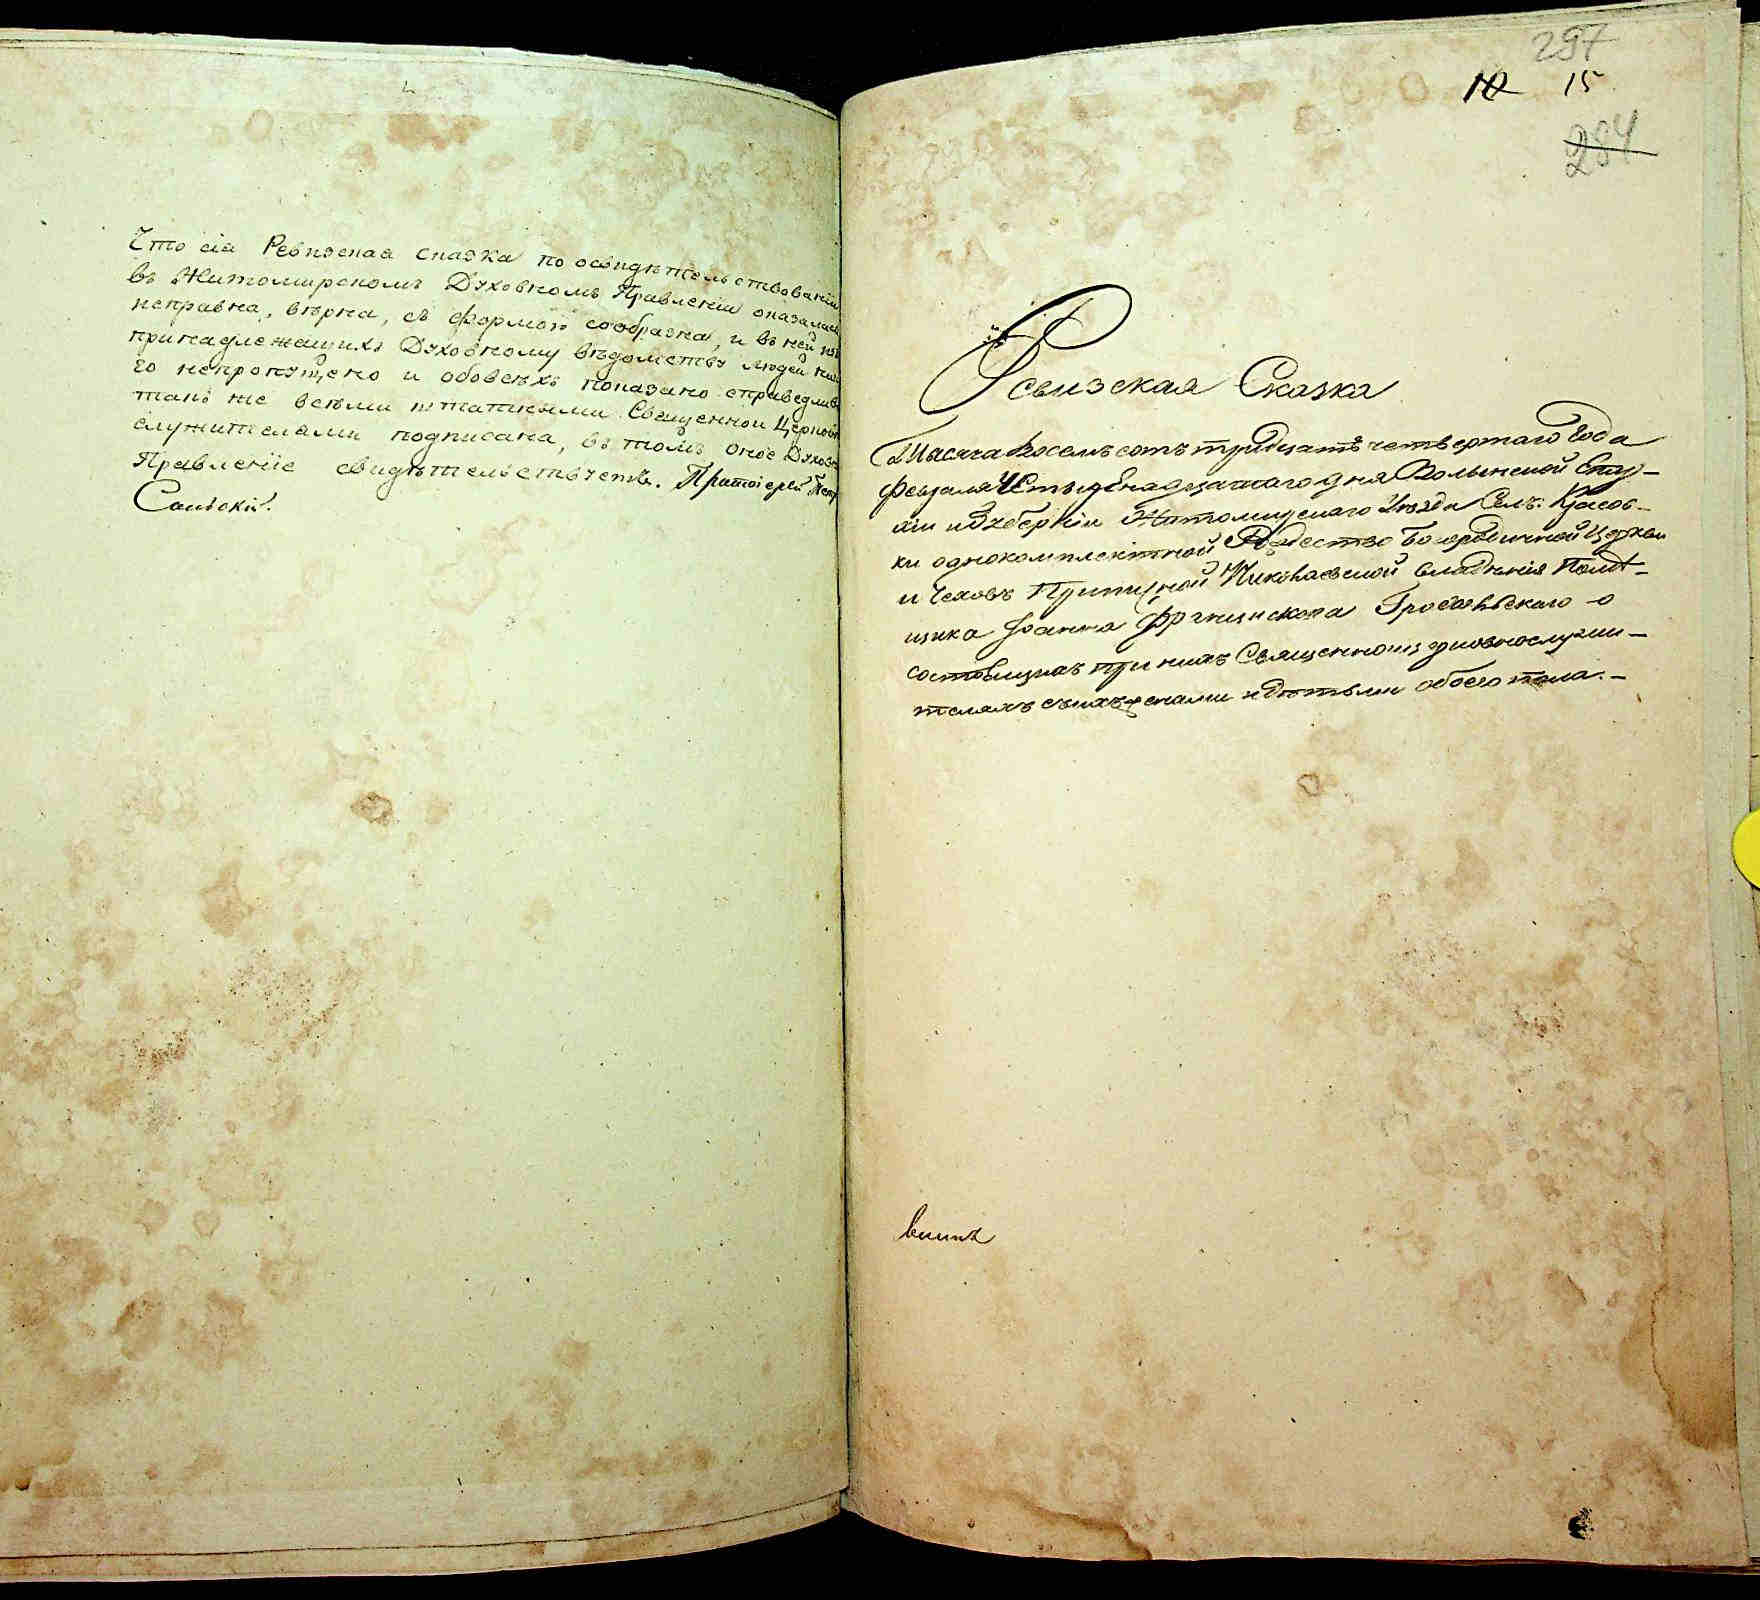 Что сіа Ревизская сказка по освидѣтельствованіи
въ Житомирскомъ Духовномъ Правленіи оказалась
исправна, вѣрна, съ формою сообразна, и въ ней изъ
принадлежащихъ Духовному вѣдомству людей ни
го непропущено и обовсѣхъ показано справедлив
такъ же всѣми штатными Священно и Церковно
служителами подписана, въ томъ оное Духовн
Правленіе свидѣтельствуетъ. Протоіерей Петр
Сальскій.
297
10 15
284
Ревизская Сказка
Тысяча восемъ сотъ тридцатъ четвертаго Года
Февраля Четырнадцатаго дня Волынской Епар-
хіи и Губерніи Житомирскаго Уѣзда Селъ: Красов-
ки однокомплектной Рождество Богородичной Церкви
и Чеховъ Приписной Николаевской владѣнія Помѣ-
щика Іоанна Францискова Гробовского о
состоящихъ при нихъ Священноцерковнослужи-
теляхъ съ ихъ женами и дѣтьми обоего пола.-